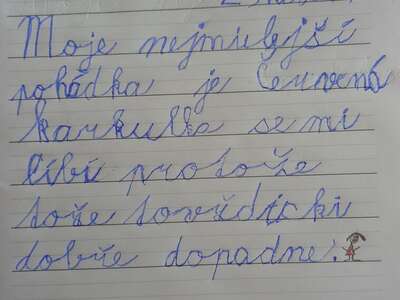 Moje nejmilejší
pohádka je Červená
karkulka se mi
líbí protože
tože to vždicki
dobře dopadne.